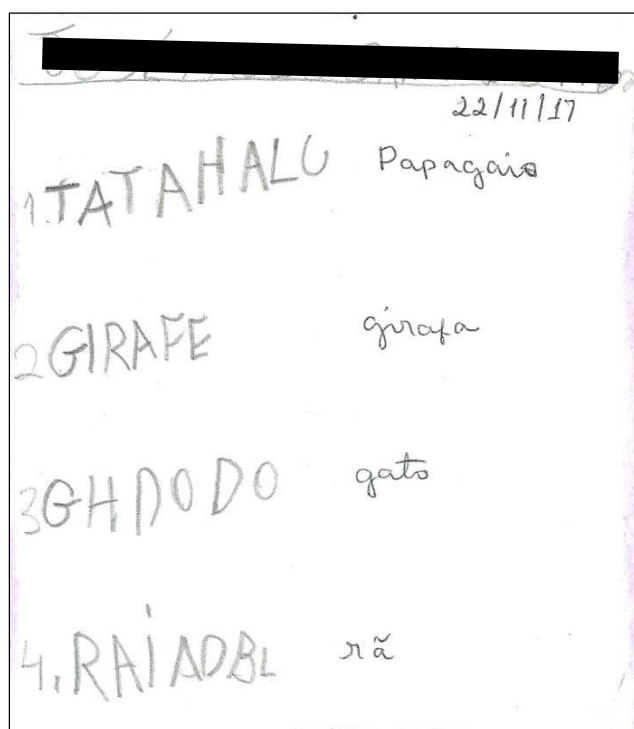 22/11/17
1.TATAHALU Papagaio
2 GIRAFE girafa
3 GHDODO gato
4. RAIADBL rã